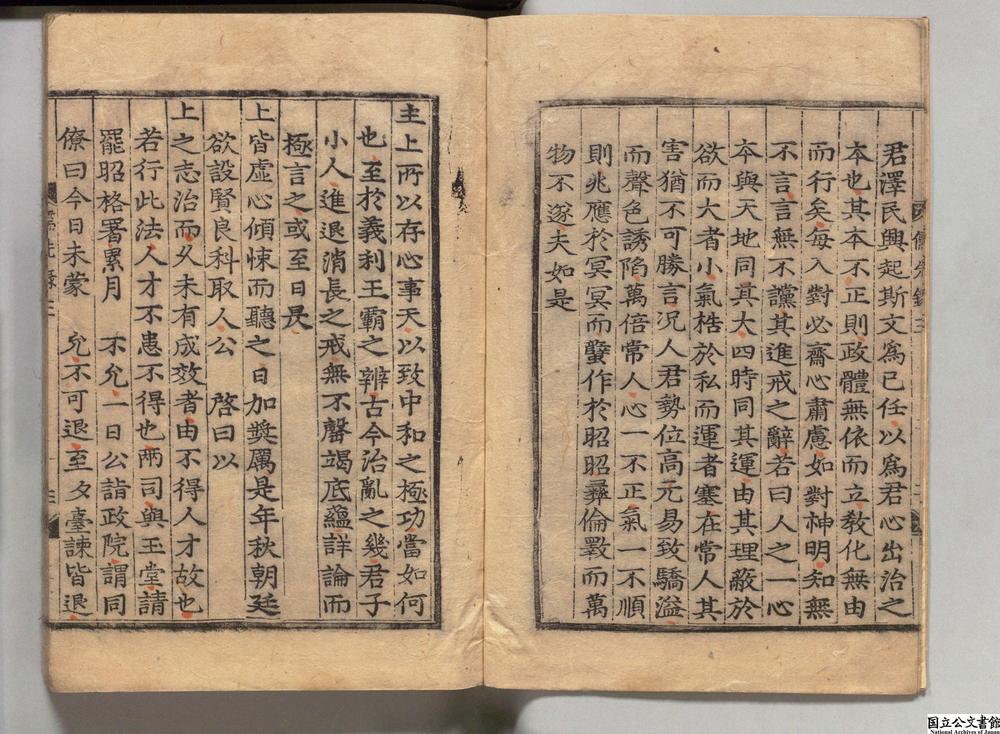 君澤民興起斯文爲已任以爲君心出治之
夲也其夲不正則政體無依而立敎化無由
而行矣每入對必齋心肅慮如對神明知無
不言言無不讜其進戒之辭若曰人之一心
夲與天地同其大四時同其運由其理蔽於
欲而大者小氣梏於私而運者塞在常人其
害猶不可勝言况人君勢位高亢易致驕溢
而聲色誘陷萬倍常人心一不正氣一不順
則兆應於冥冥而孼作於昭昭彝倫斁而萬
物不遂夫如是
主上所以存心事天以致中和之極功當如何
也至於義利王霸之辨古今治亂之幾君子
小人進退消長之戒無不罄竭底蘊詳論而
極言之或至日昃
上皆虛心傾悚而聽之日加奬厲是年秋朝廷
欲設賢良科取人公 啓曰以
上之志治而久未有成效者由不得人才故也
若行此法人才不患不得也兩司與玉堂請
罷昭格署累月 不允一日公詣政院謂同
僚曰今日未蒙 允不可退至夕臺諫皆退
国立公文書館
National Archives of Japan